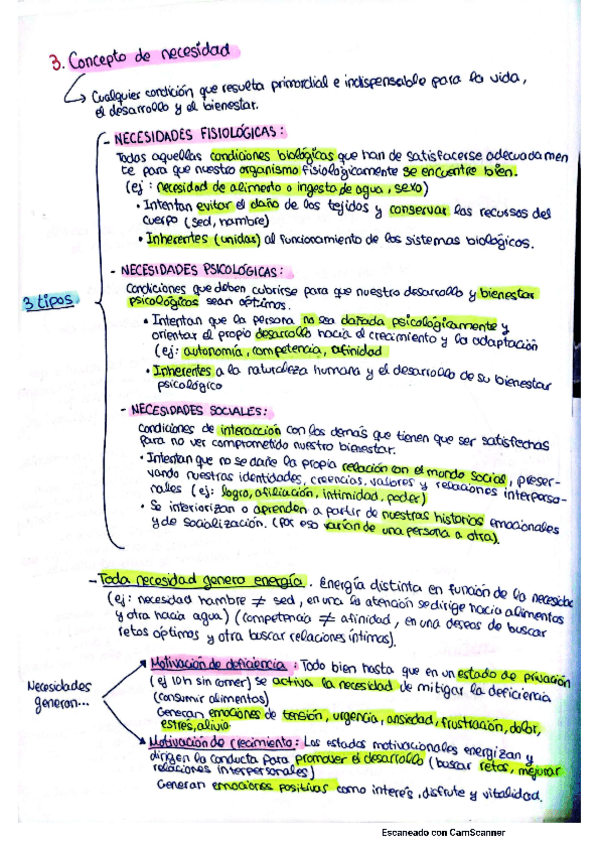 3. Concepto de necesidad
Cualquier condición que resulta primordial e indispensable para la vida,
el desarrollo y el bienestar.
- NECESIDADES FISIOLÓGICAS:
Todas aquellas condiciones biológicas que han de satisfacerse adecuadamen
te para que nuestro organismo fisiológicamente se encuentre bien.
(ej: necesidad de alimento o ingesta de agua, sexo)
• Intentan evitar el daño de los tejidos y conservar las recursos del
cuerpo (sed, hambre)
• Inherentes (unidas) al funcionamiento de los sistemas biológicos.
- NECESIDADES PSICOLÓGICAS:
Condiciones que deben cubrirse para que nuestro desarrollo y bienestar
psicológicos sean óptimos.
3 tipos
• Intentan que la persona no sea dañada psicológicamente y
orientar el propio desarrollo hacia el crecimiento y la adaptación
(ej: autonomía, competencia, afinidad
• Inherentes a la naturaleza humana y el desarrollo de su bienestar
psicológico
- NECESIDADES SOCIALES:
Condiciones de interacción con los demás que tienen que ser satisfechas
para no ver comprometido nuestro bienestar.
• Intentan que no se dañe la propia relación con el mundo social, preser-
vando nuestras identidades, creencias, valores y relaciones interperso-
nales (ej: logro, afiliación, intimidad, poder)
• Se interiorizan o aprenden a partir de nuestras historias emocionales
y de socialización. (Por eso varían de una persona a otra).
- Toda necesidad genera energía. Energía distinta en función de la necesidad
(ej: necesidad hambre ≠ sed, en una la atención se dirige hacia alimentos
y otra hacia agua) (competencia ≠ afinidad, en una deseas de buscar
retos óptimos y otra buscar relaciones íntimas).
Necesidades
generan...
Motivación de deficiencia: Todo bien hasta que en un estado de privación
(ej 10h sin comer) se activa la necesidad de mitigar la deficiencia
(consumir alimentos)
Generan emociones de tensión, urgencia, ansiedad, frustración, dolor,
estrés, alivio
Motivación de crecimiento: Los estados motivacionales energizan y
dirigen la conducta para promover el desarrollo (buscar retos, mejorar
relaciones interpersonales)
Generan emociones positivas como interés, disfrute y vitalidad.
Escaneado con CamScanner